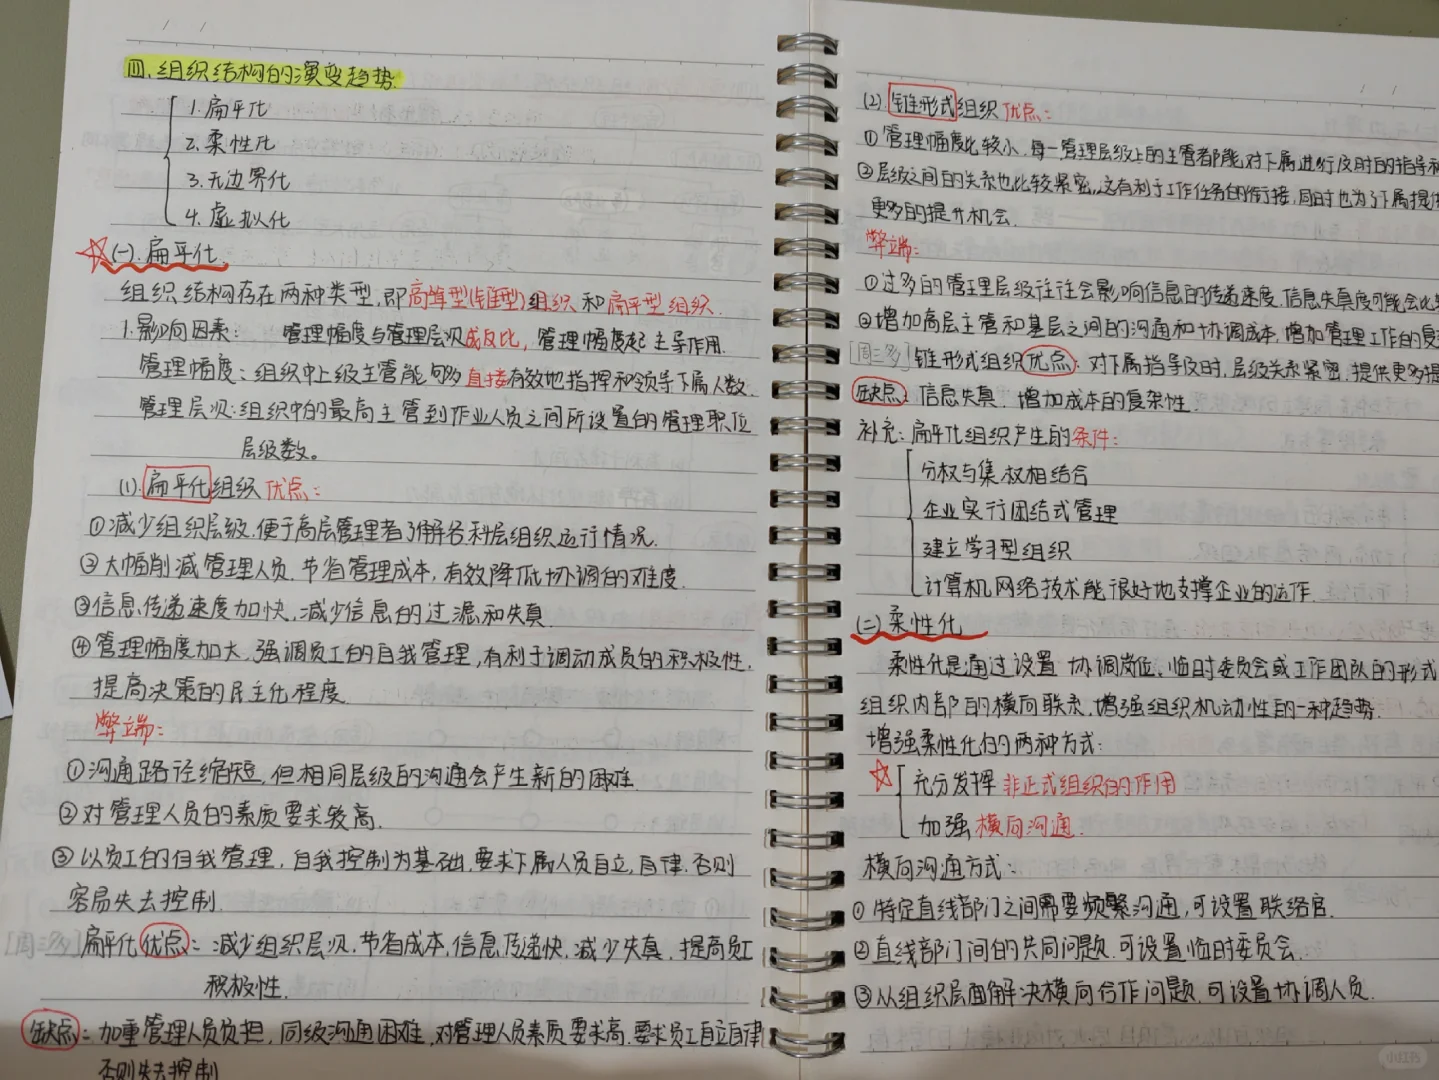 四.组织结构的演变趋势.
1.扁平化
2.柔性化
3.无边界化
4.虚拟化
(一).扁平化.
组织结构存在两种类型,即高耸型(锥型)组织和扁平型组织.
1.影响因素: 管理幅度与管理层次成反比,管理幅度起主导作用.
管理幅度:组织中上级主管能够多直接有效地指挥和领导下属人数.
管理层次:组织中的最高主管到作业人员之间所设置的管理职位
层级数。
(1).扁平化组织优点:
①减少组织层级.便于高层管理者了解各科层组织运行情况.
②大幅削减管理人员.节省管理成本,有效降低协调的难度.
③信息传递速度加快,减少信息的过滤和失真.
④管理幅度加大,强调员工的自我管理,有利于调动成员的积极性.
提高决策的民主化程度.
弊端:
①沟通路径缩短,但相同层级的沟通会产生新的困难.
②对管理人员的素质要求较高.
③以员工的自我管理,自我控制为基础,要求下属人员自立,自律.否则
容易失去控制.
[周三多]扁平化优点:减少组织层次.节省成本,信息传递快,减少失真,提高员工
积极性.
缺点:加重管理人员负担,同级沟通困难,对管理人员素质要求高.要求员工自立自律
否则失去控制
(2).锥形式组织优点:
①管理幅度比较小.每一管理层级上的主管都能对下属进行及时的指导和
②层级之间的关系也比较紧密,这有利于工作任务的衔接,同时也为了下属提供
更多的提升机会.
弊端:
①过多的管理层级往往会影响信息的传递速度.信息失真度可能会比
②增加高层主管和基层之间的沟通和协调成本,增加管理工作的复
[周三多]锥形式组织优点:对下属指导及时,层级关系紧密,提供更多提
缺点:信息失真.增加成本的复杂性.
补充:扁平化组织产生的条件:
分权与集权相结合
企业实行团结式管理
建立学习型组织
计算机网络技术能很好地支撑企业的运作.
(二)柔性化
柔性化是通过设置协调岗位、临时委员会或工作团队的形式
组织内部的横向联系,增强组织机动性的一种趋势.
增强柔性化的两种方式:
充分发挥非正式组织的作用
加强横向沟通.
横向沟通方式:
①特定直线部门之间需要频繁沟通,可设置联络官.
②直线部门间的共同问题.可设置临时委员会.
③从组织层面解决横向合作问题.可设置协调人员.
小红书